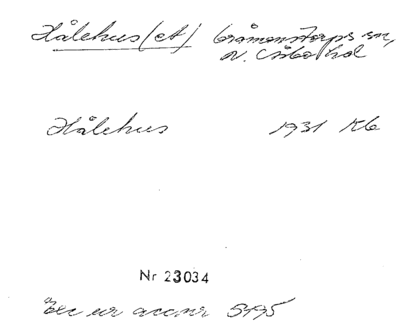 Hålehus (et) Gråmanstorps sn,
N. Åsbo hd
Hålehus 1931 Kb
Nr 23034
Exc ur acc.nr 5195